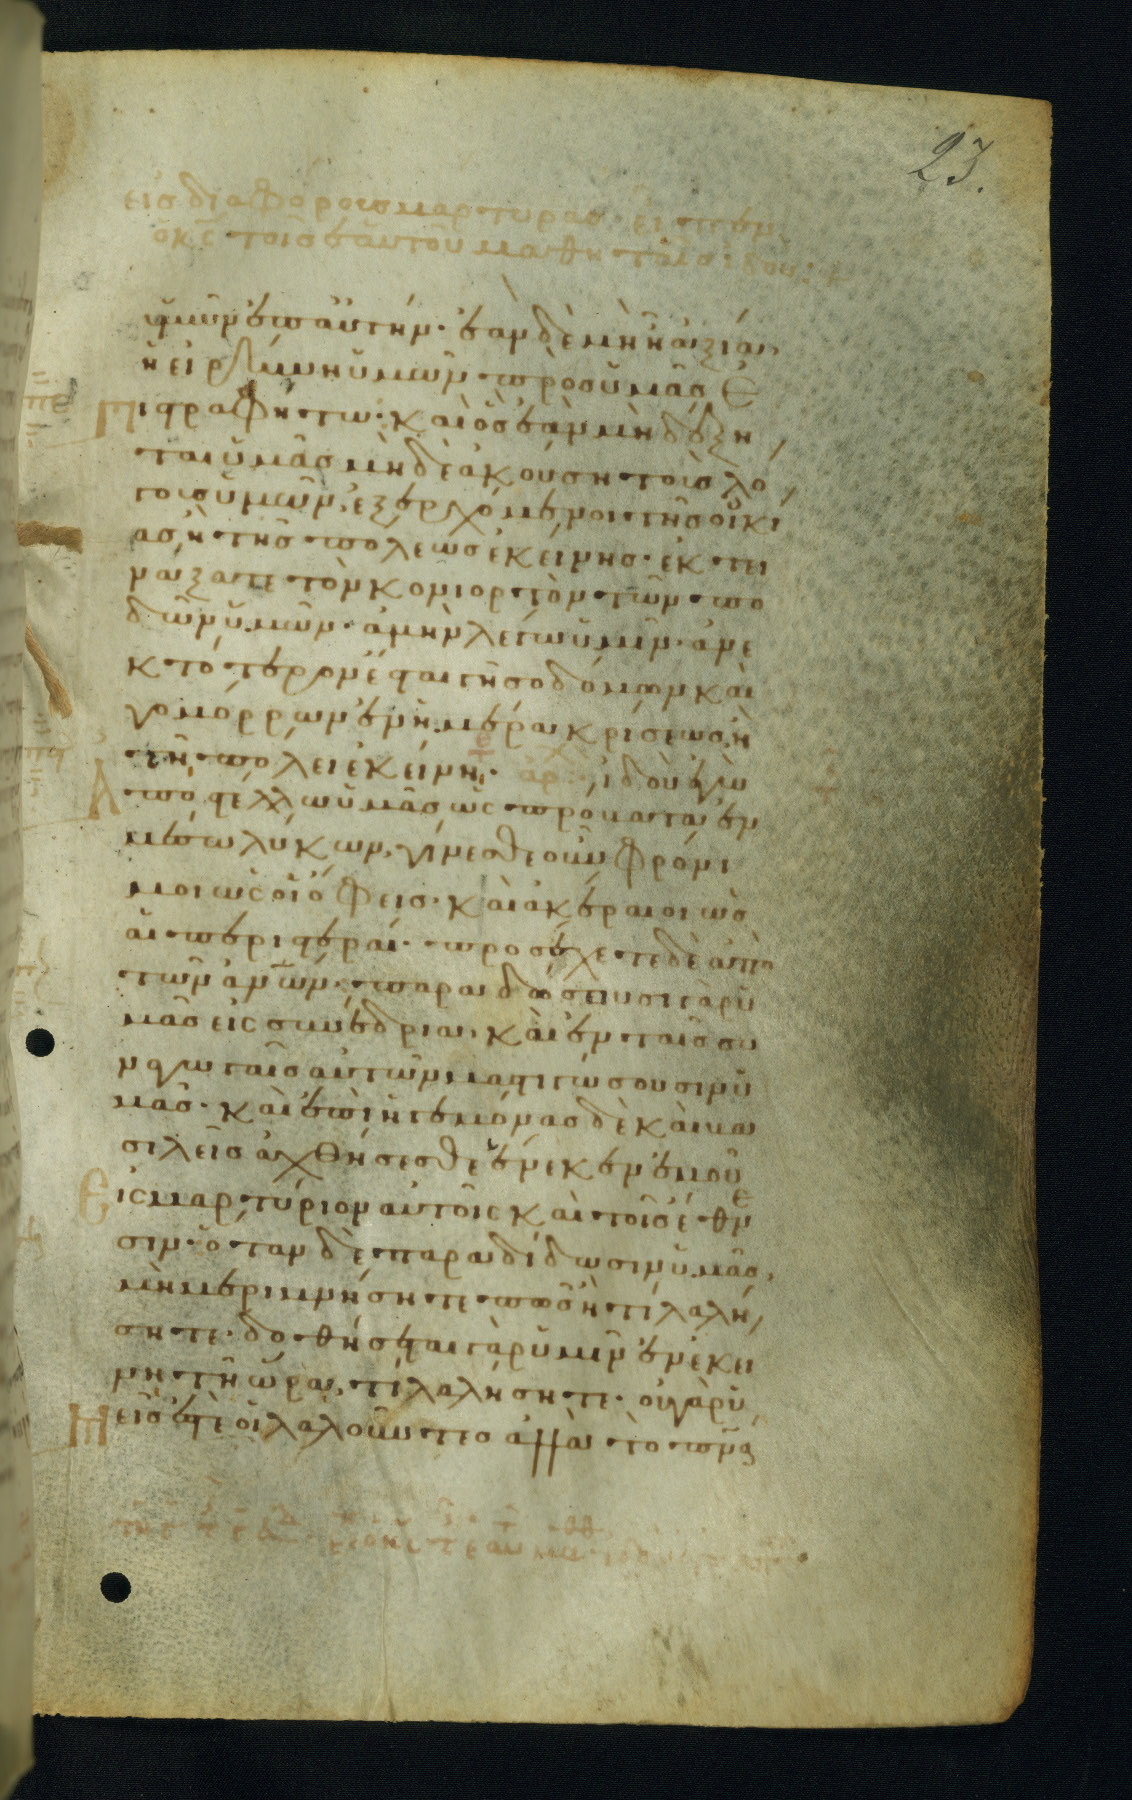 23.
εἰς διαφόρους μάρτυρας· εἶπεν
ὁ κς τοῖς ἑαυτοῦ μαθηταῖς· ἰδου· +
ὑμῶν ἐπ' αὐτήν· ἐὰν δὲ μὴ ἦ ἀξία,
ἡ εἰρήνη ὑμῶν πρὸς ὑμᾶς ἐ
πιστραφήτω· καὶ ὃς ἐὰν μὴ δέξη
ται ὑμᾶς μηδὲ ἀκούση τοὺς λό
γους ὑμῶν, ἐξερχόμενοι τῆς οἰκί
ας ἢ τῆς πόλεως ἐκείνης· ἐκτι
νάξατε τὸν κονιορτὸν τῶν πο
δῶν ὑμῶν· ἀμὴν λέγω ὑμῖν· ἀνε
κτότερον ἔσται γῆ σοδόμων καὶ
γομόρρων ἐν ἡμέρα κρίσεως, ἢ
τῆ πόλει ἐκείνη· ἀρχ ἰδοὺ ἐγὼ
Ἀποστέλλω ὑμᾶς ὡς πρόβατα ἐν
μέσω λύκων, γίνεσθε οὖν φρόνι
μοι ὡς οἱ ὄφεις· καὶ ἀκέραιοι ὡς
αἱ περιστεραί· προσέχετε δὲ ἀπὸ
τῶν ἀνων· παραδώσουσι γὰρ ὑ
μᾶς εἰς συνέδρια, καὶ ἐν ταῖς συ
ναγωγαῖς αὐτῶν μαστιγώσουσιν ὑ
μᾶς· καὶ ἐπὶ ἡγεμόνας δὲ καὶ βα
σιλεῖς ἀχθήσεσθε ἕνεκεν ἐμοῦ
Εἰς μαρτύριον αὐτοῖς καὶ τοῖς ἔθνε
σιν· ὅταν δὲ παραδιδῶσιν ὑμᾶς,
μὴ μεριμνήσητε πῶς ἢ τί λαλή
σητε· δοθήσεται γὰρ ὑμῖν ἐν ἐκεί
νη τῆ ὥρα, τί λαλήσητε· οὐ γὰρ ὑ
μεῖς ἐστὲ οἱ λαλοῦντες ἀλλὰ τὸ πνα